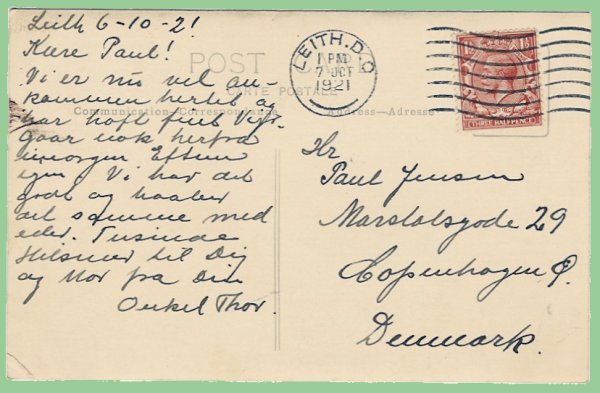 Leith 6-10-21
Kære Paul!
Vi er nu vel an-
kommen hertil og
har haft fint Vejr.
gaar nok herfra
imorgen Eftem
igen. Vi har det
godt og haaber
det samme med
eder. Tusinde
Hilsner til Dig
og Mor fra Din
Onkel Thor.
POST CARD
CARTE POSTALE
Communication—Correspondance
Address—Adresse
LEITH. D.O
1 PM
7 OCT
1921
THREE HALFPENCE
Hr
Paul Jensen
Marstalsgade 29
Copenhagen Ø.
Denmark.